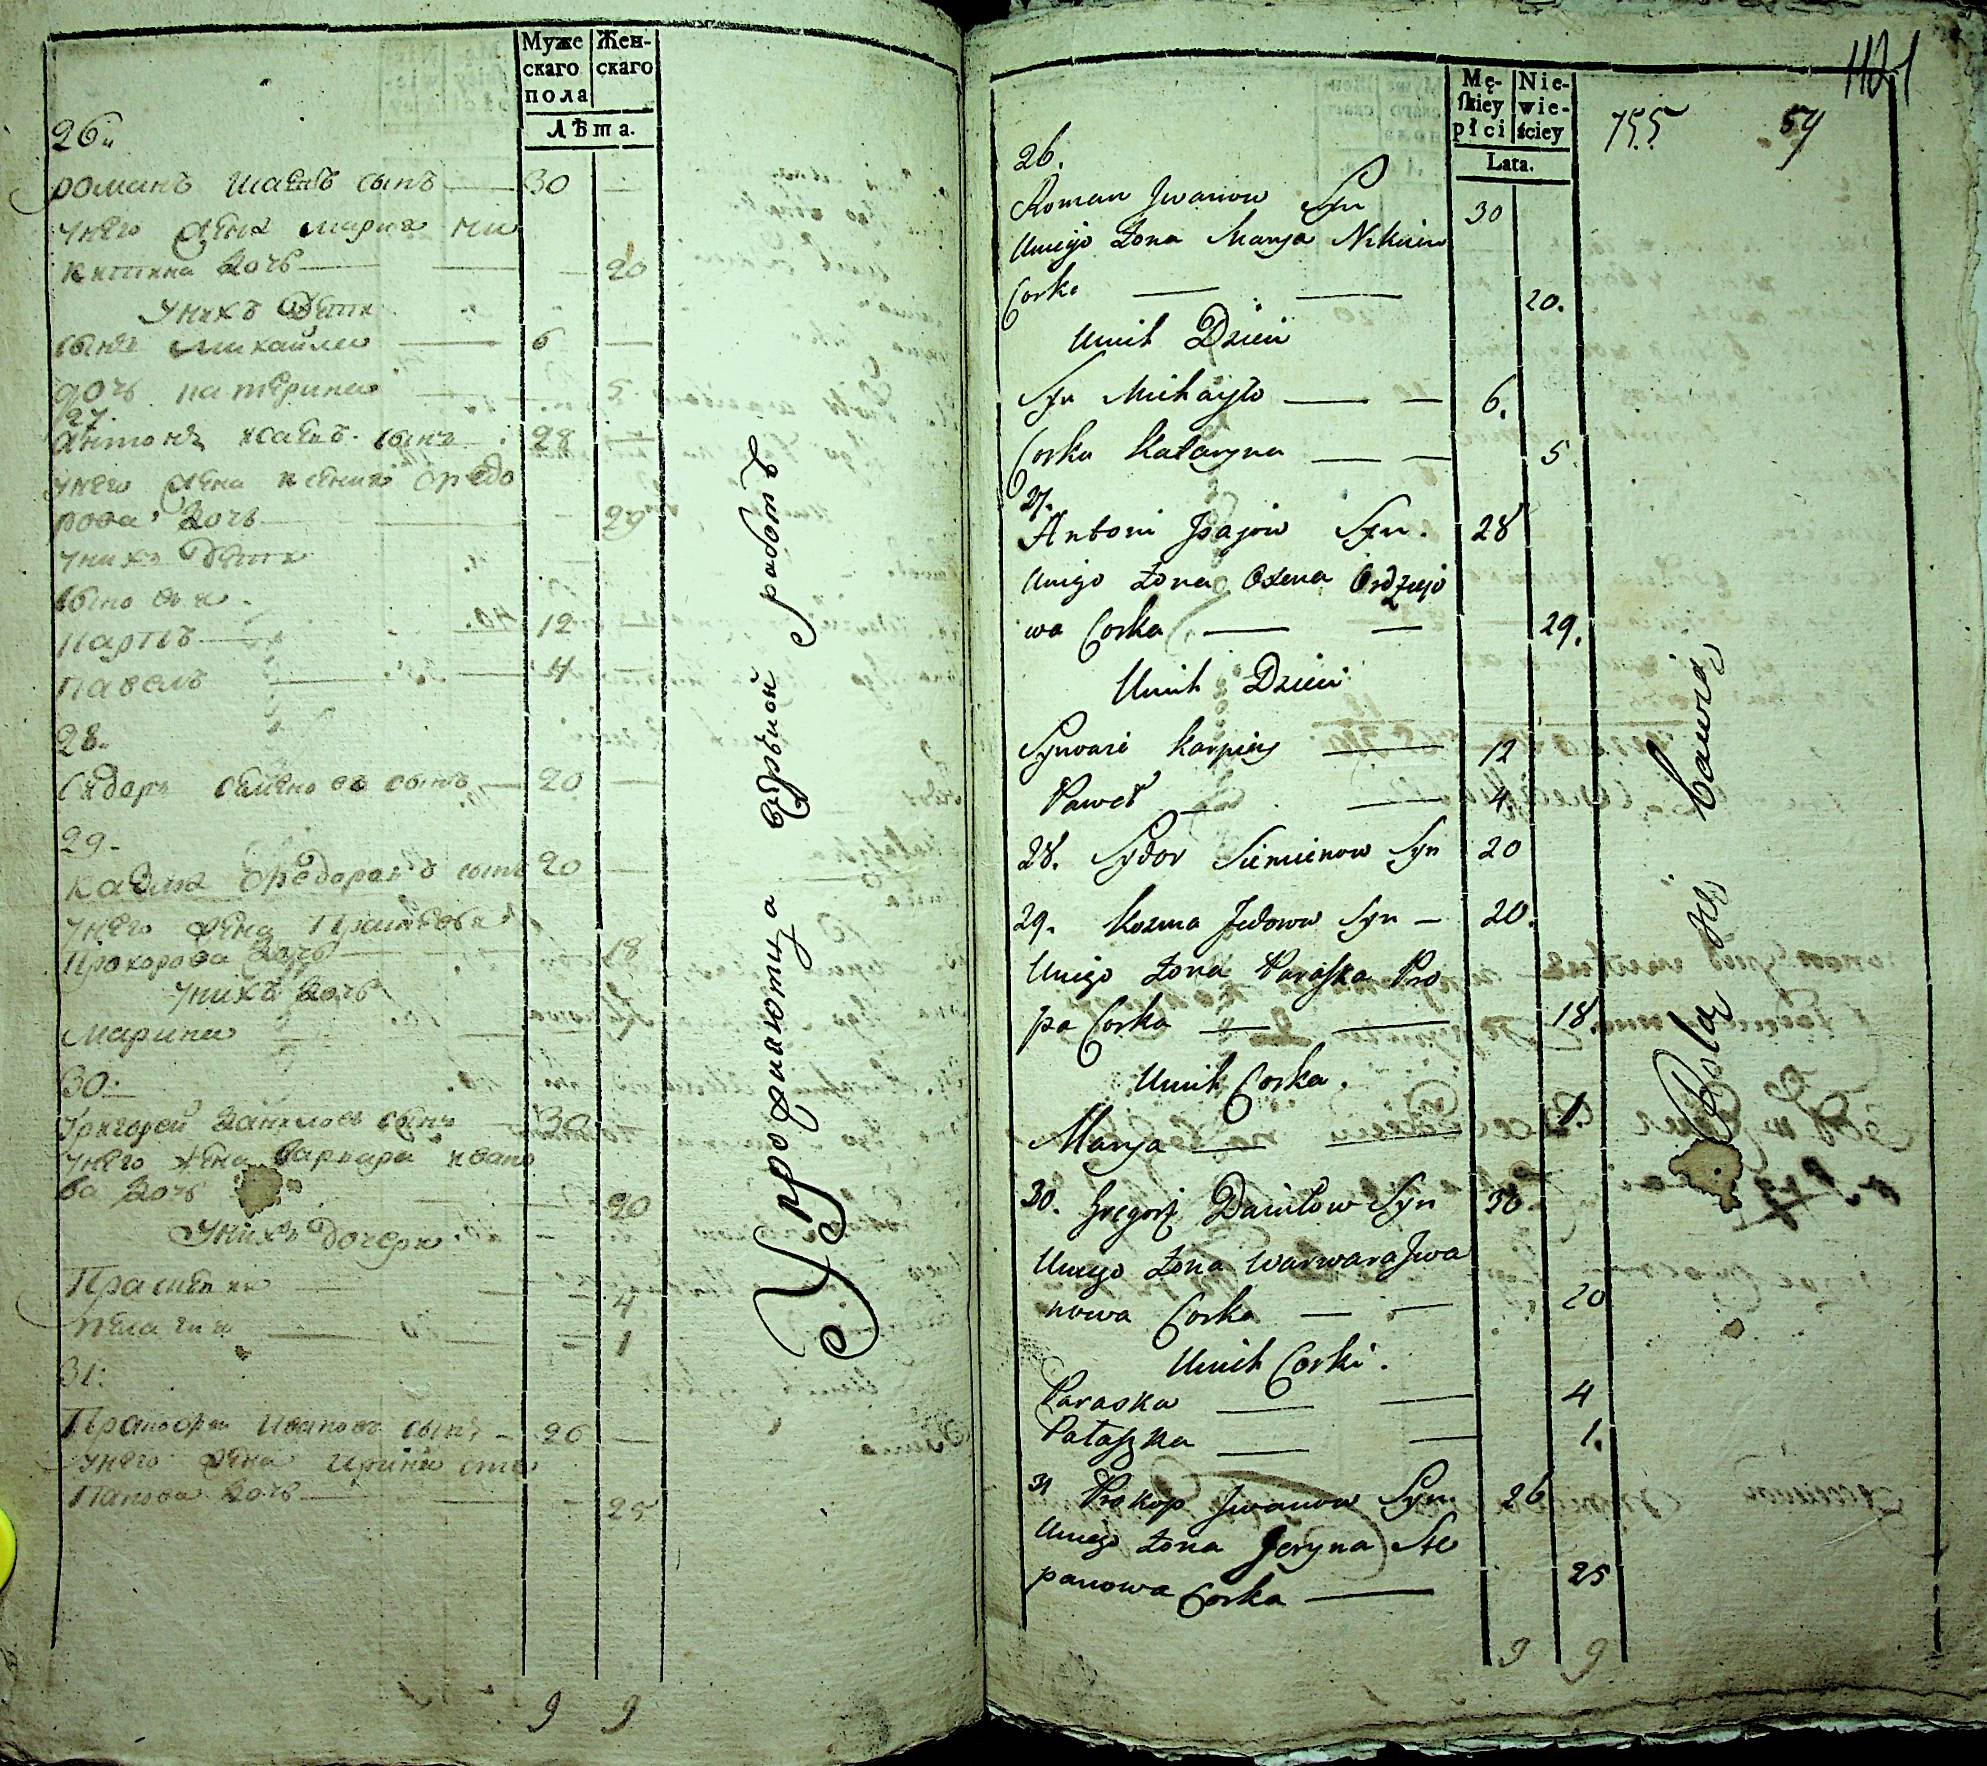 Муже
скаго
пола
Жен-
скаго
Лѣта.
26
романъ сынъ 30
унего жена мария ни
китина дочь 20
унихъ дети
сынъ михайло 6
дочь катерина 5
27.
антонъ исаевъ сынъ 28
унего жена ксения федо
рова дочь 29
унихъ дети
сыновя
карпъ 12
павелъ 4
28.
сидоръ семеновъ сынъ 20
29.
казма федоровъ сынъ 20
унего жена
прохорова дочь 18
унихъ дочь
марина
30.
григорей данилов сынъ 30
унего жена варвара ивано
ва дочь 20
унихъ дочери
4
пелагия 1
31.
иванов сынъ 26
унего жена ирина сте
панова дочь 25
9 9
Упрофиантца в едѣной работѣ
1121
Mę-
ſkiey
płci
Nie-
wie-
ściey
Lata.
755 54
26.
Roman Jwanow Syn 30
Uniego Zona Marya Nikicin
Corka 20.
Unich Dzieci
Syn Michayło 6.
Corka Kataryna 5
27.
Antoni Jsajow Syn. 28
Unigo Zona Oxena
wa Corka 29.
Unich Dzieci
Synowie Karpiey 12
Paweł 4.
28. Sydor Siemienow Syn 20
29. Kozma Fedorow Syn 20.
Uniego Zona Paraska Pro
pa Corka 18.
Unich Corka.
Marya 1.
30. Gregori Daniłow Syn 30
Uniego Zona Warwara Jwa
nowa Corka 20
Unich Corki.
Paraska 4
Pałaszka 1.
31 Prokop Jwanow Syn 26
Uniego Zona Jeryna Ste
panowa Corka 25
9 9
się bawią